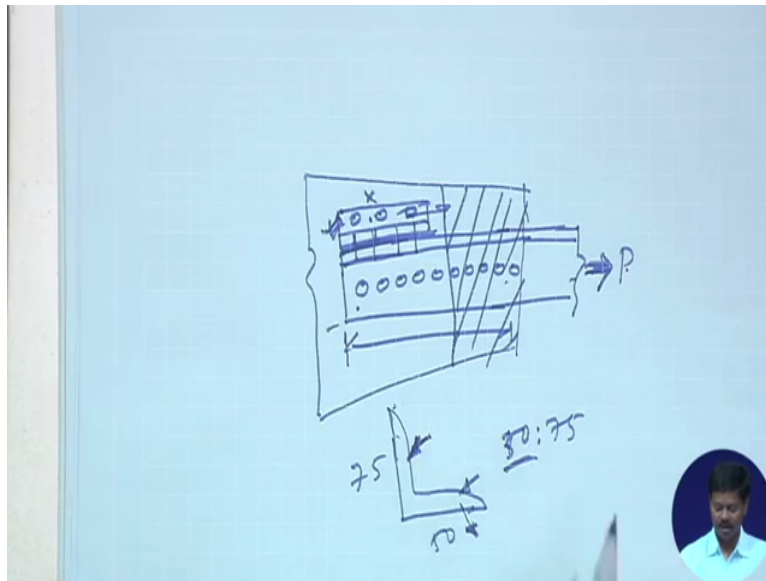 x
P
75
50 : 75
50